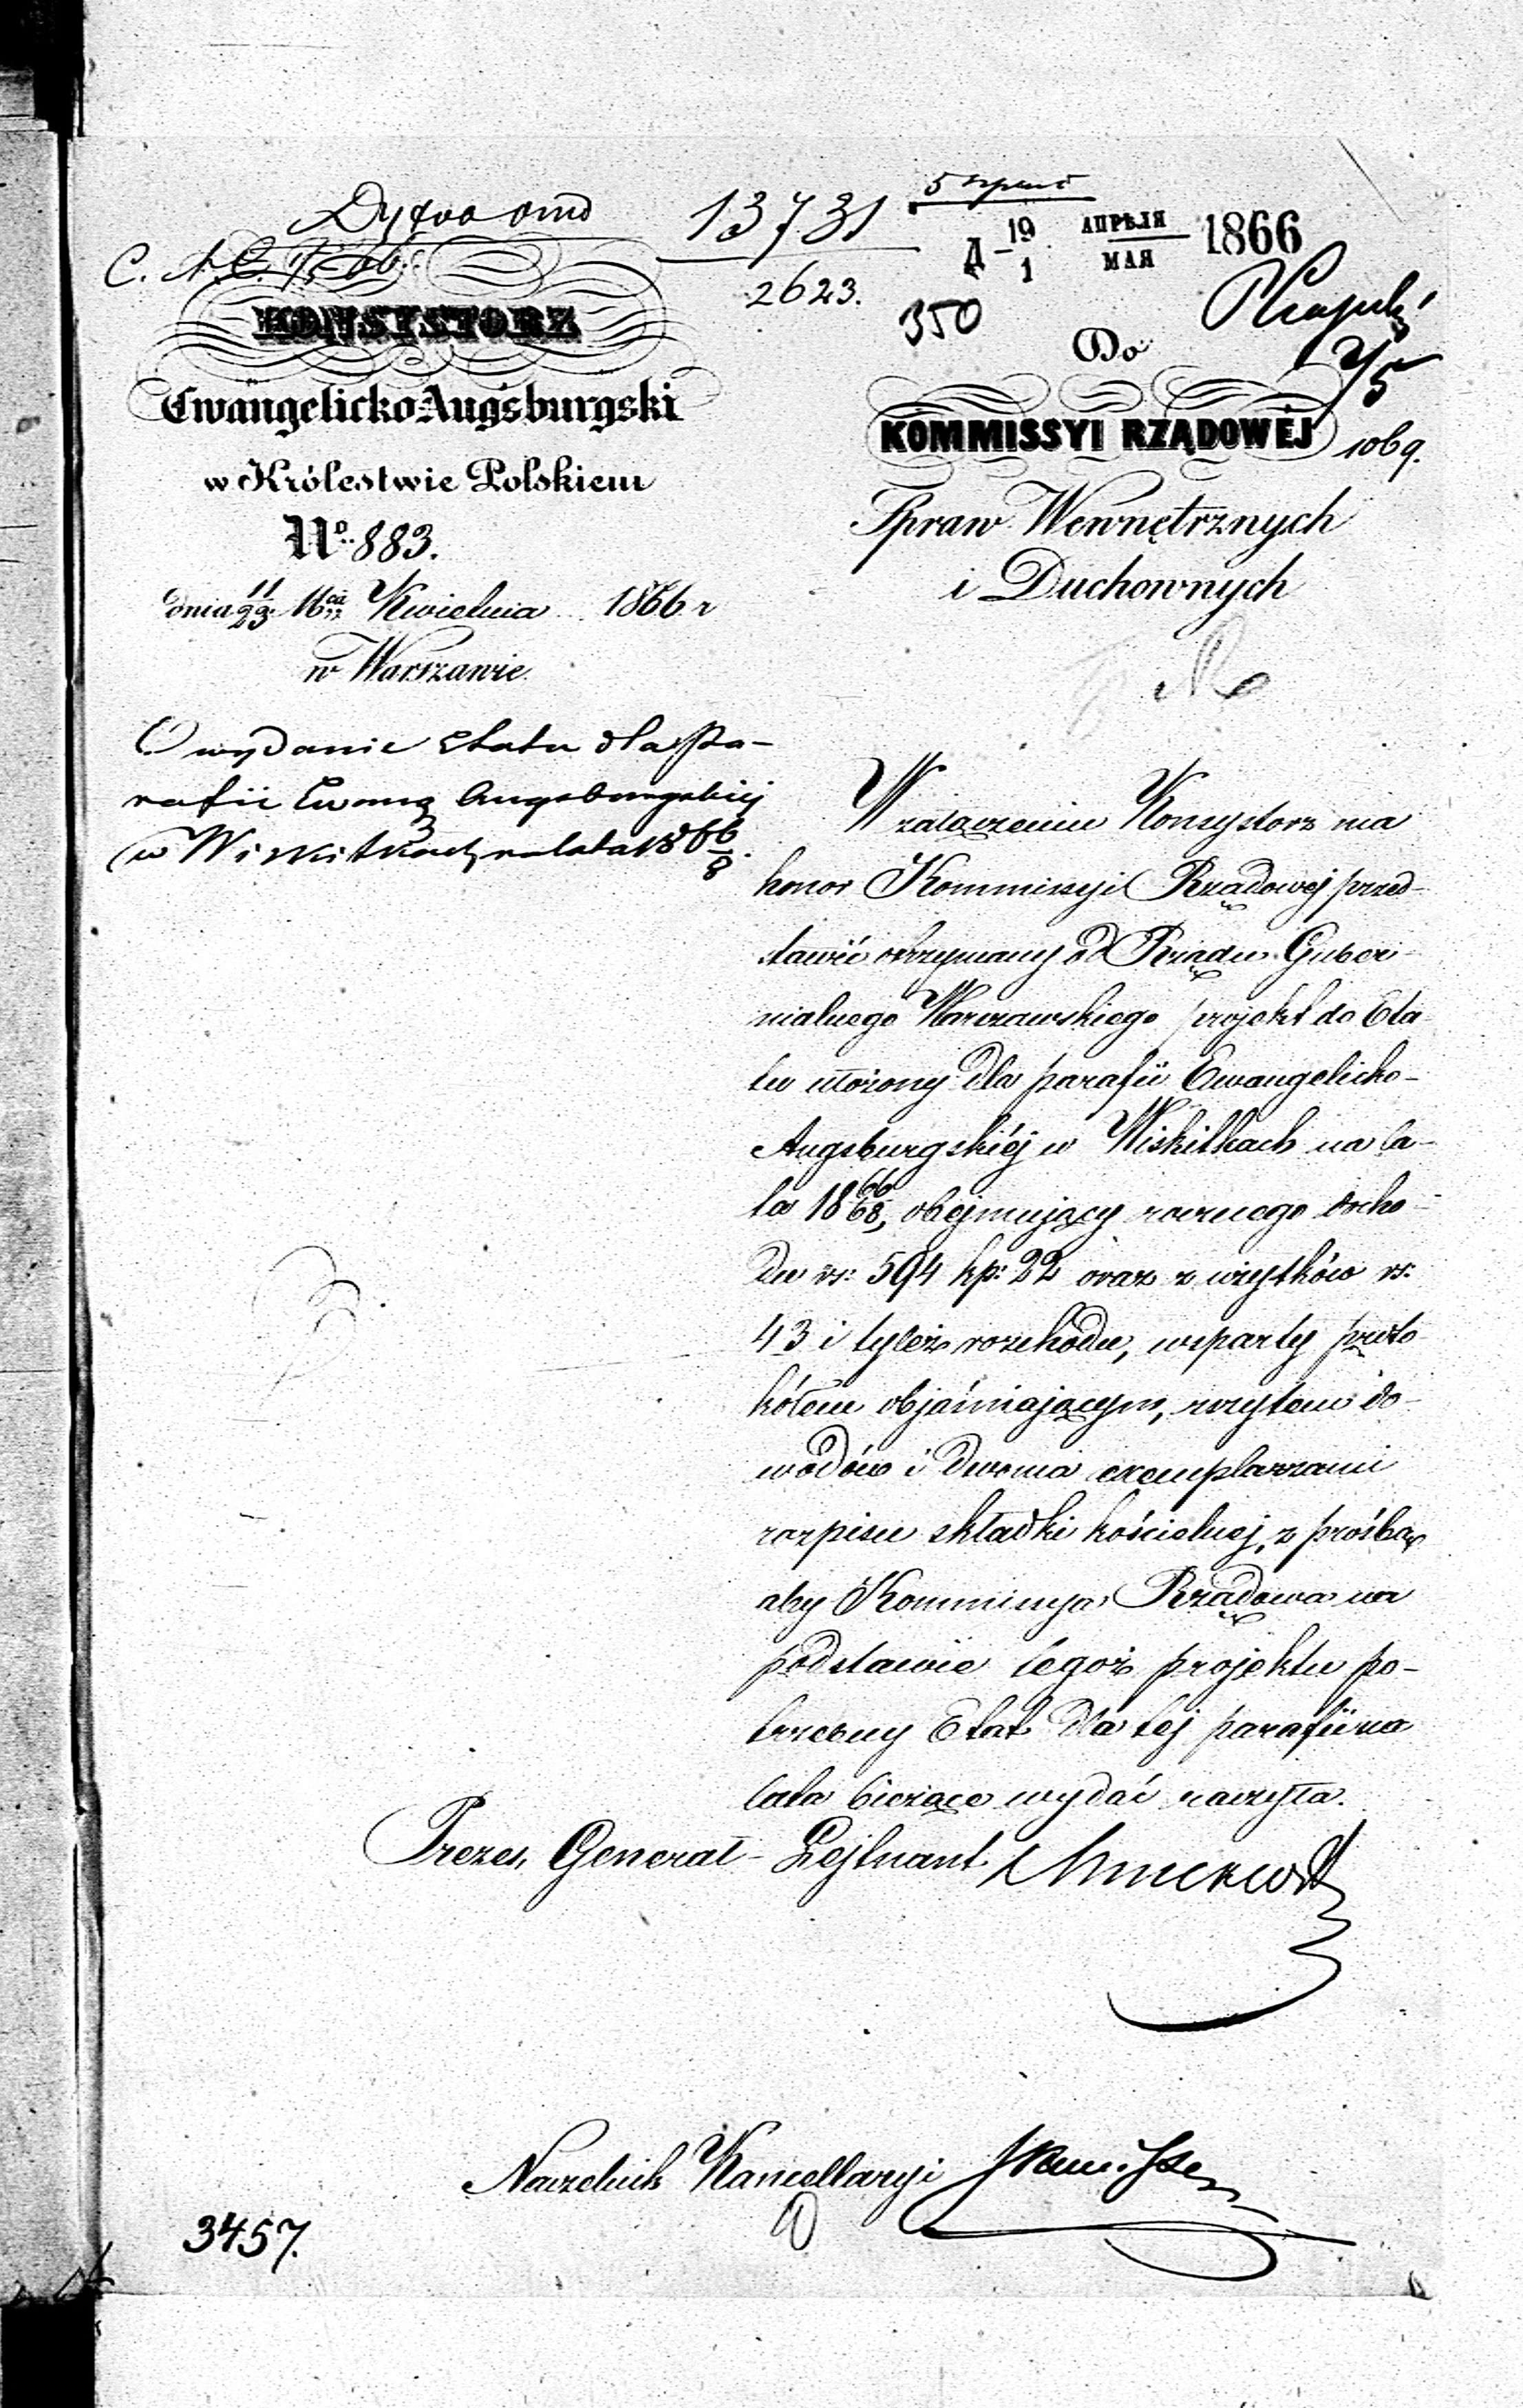 13731
2623.
350
Д 19/1 АПРѢЛЯ/МАЯ 1866
2/5
1069.
KONSYSTORZ
Ewangelicko-Augsburgski
w Królestwie Polskiem
No. 883.
dnia 11/23 Kwietnia 1866 r
w Warszawie.
O wydanie Etatu dla Pa-
rafii Ewang Augsburgskiej
w Wiskitkach na lata 1866/8.
Do
KOMMISSYI RZĄDOWÉJ
Spraw Wewnętrznych
i Duchownych
W załączeniu Konsystorz ma
honor Kommissyi Rządowej przed-
stawić otrzymany od Rządu Guber-
nialnego Warszawskiego projekt do Eta-
tu ułożony dla parafii Ewangelicko-
Augsburgskiéj w Wiskitkach na la-
ta 1866/68, obejmujący rocznego docho-
du rs: 594 kp: 22 oraz z wsytków rs:
43 i tyleż rozchodu, wsparty proto
kółem objaśniającym, zszytem do-
wodów i dwoma exemplarzami
rozpisu składki kościelnej, z prośbą
aby Kommissya Rządowa na
podstawie tegoż projektu po-
trzebny Etat dla tej parafii na
lata bieżące wydać raczyła.
Prezes, Generał-Lejtnant
Naczelnik Kancellaryi
3457.